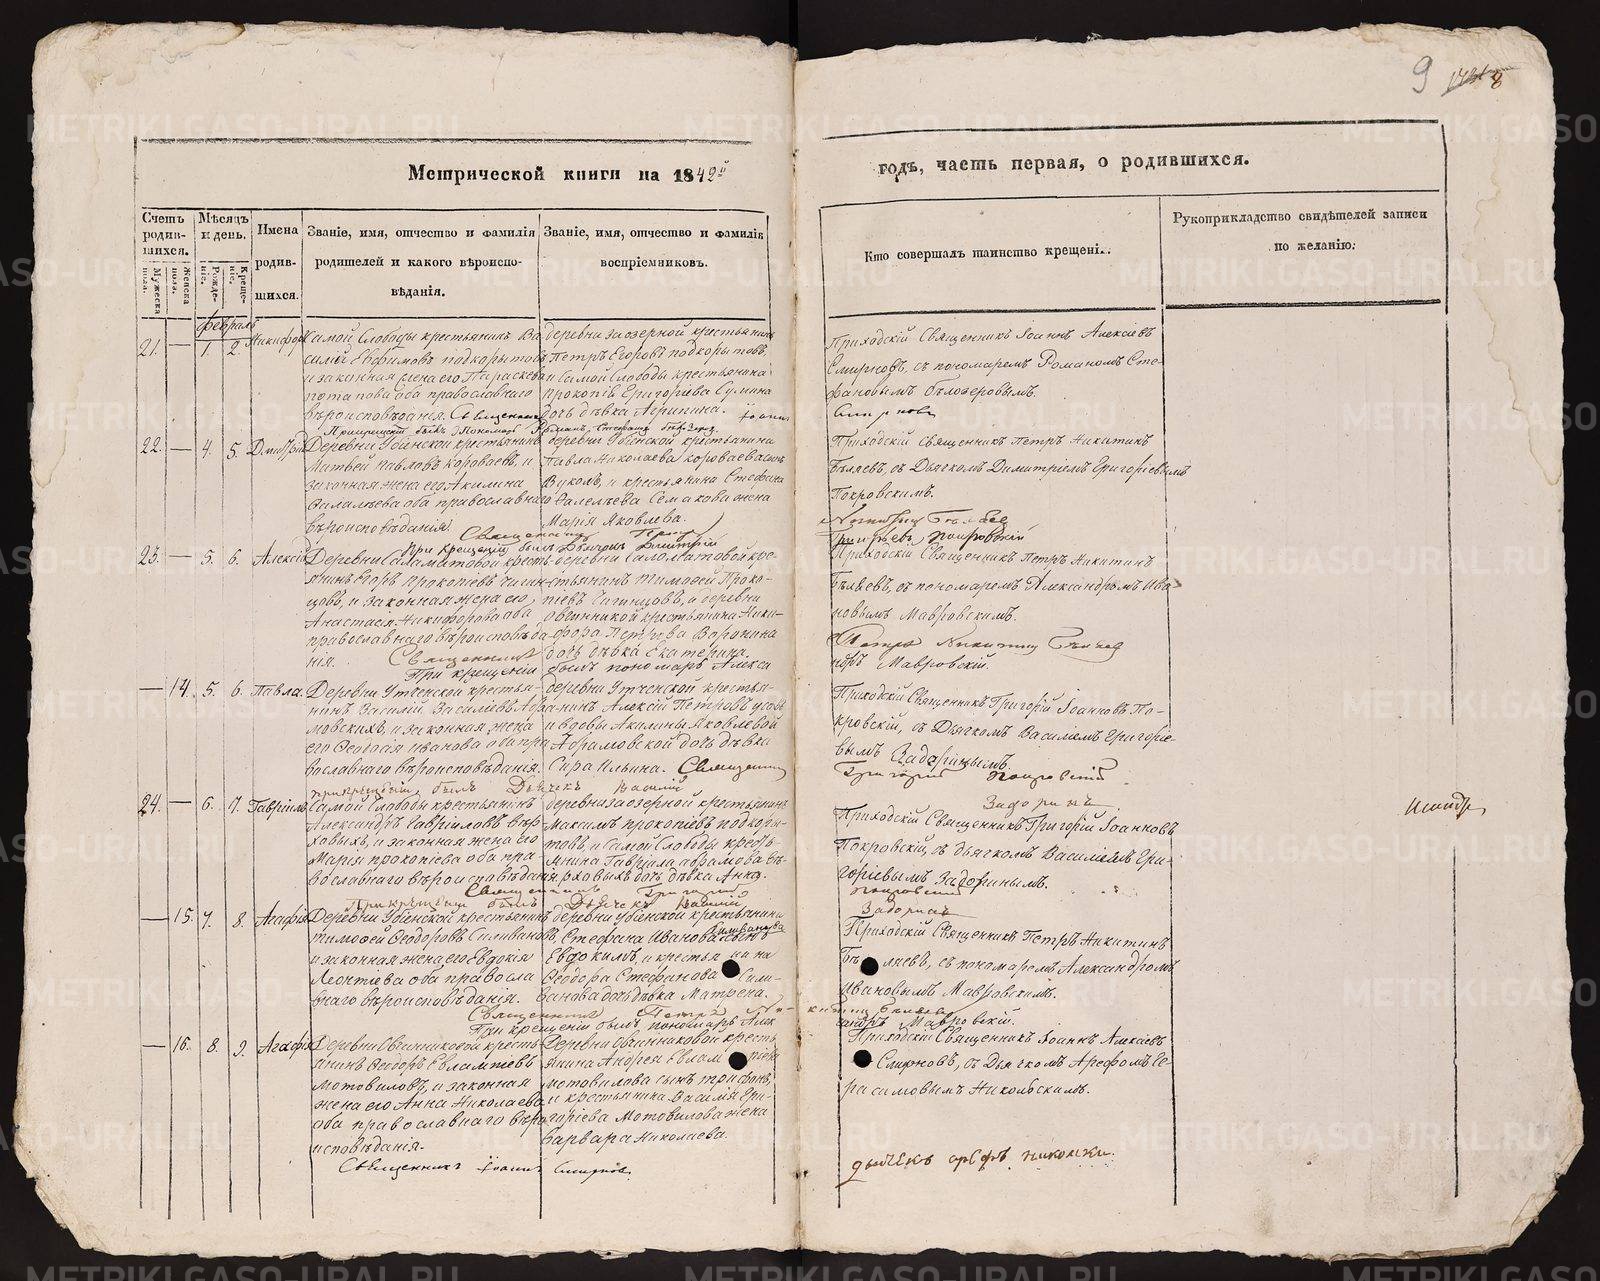 9 8
Метрической книги на 1842й
годъ, часть первая, о родившихся.
Счетъ родив-шихся.
Мужеска пола.
Женска пола.
Мѣсяцъ и день.
Рожде-ніе.
Креще-ніе.
Имена
родив-
шихся.
Званіе, имя, отчество и фамилія
родителей и какого вѣроиспо-
вѣданія.
Званіе, имя, отчество и фамилія
воспріемниковъ.
Кто совершалъ таинство крещені..
Рукоприкладство свидѣтелей записи
по желанію.
февраль
21. — 1. 2. Никифоръ
Самой Слободы крестьянинъ Ва
силій Евфимовъ подкорытовъ
и законная жена его Параскева
потапова оба православнаго
вѣроисповѣданія. Священникъ Іоаннъ
деревни Заозерной крестьянинъ
Петръ Егоровъ подкорытовъ,
и Самой Слободы крестьянина
прокопія Григорьева Сулина
дочь дѣвка Агрипина.
Приходскій Священникъ Іоаннъ Алексѣевъ
Смирновъ, съ пономаремъ Романомъ Сте-
фановымъ бѣлозеровымъ.
Смирновъ
22. — 4. 5. Дмитрій
Деревни Убіенской крестьянинъ
Матвей павловъ короваевъ, и
законная жена его Акилина
оба православнаго
вѣроисповѣданія.
Священникъ Петръ
При крещеніи былъ Дьячекъ Дмитрій
деревни Убіенской крестьянина
павла Николаева короваева сынъ
Вуколъ, и крестьянина Стефана
Фалелѣева Семакова жена
Марія Яковлева.
Приходскій священникъ Петръ Никитинъ
Бѣляевъ, съ Дьячкомъ Димитріемъ Григоріевымъ
Покровскимъ.
Никитинъ Бѣляевъ
Григорьевъ Покровскій
23. — 5. 6. Алексій
Деревни Саламатовой кресть-
янинъ Егоръ прокопіевъ Чигин-
цовъ, и законная жена его
Анастасія Никифорова оба
православнаго вѣроисповѣда-
нія. Священникъ
При крещеніи былъ пономарь Алекса
деревни Саломатовой кре-
стьянинъ тимофей Проко-
піевъ Чигинцовъ, и деревни
овчинниковой крестьянина Ники-
фора Петрова Воронина
дочь дѣвка Екатерина.
Приходскій Священникъ Петръ Никитинъ
Бѣляевъ, съ пономаремъ Александромъ Ива
новымъ Мавровскимъ.
Петръ Никитинъ Бѣляевъ
ндръ Мавровскій.
— 14. 5. 6. Павла.
Деревни Утченской крестья-
нинъ Василій Васильевъ Абра-
мовскихъ, и законная жена
его Феодосія иванова оба пра
вославнаго вѣроисповѣданія.
При крещеніи былъ Дьячекъ Василій
деревни Утченской крестья-
нинъ Алексій Петровъ
и вдовы Акилины Яковлевой
Абрамовской дочь дѣвка
Сира Ильина. Священникъ
Приходскій Священникъ Григорій Іоанновъ По-
кровскій, съ Дьячкомъ Василіемъ Григоріе-
вымъ Задоринымъ.
Григорій Покровскій
Задоринъ
24. — 6. 7. Гавріилъ.
Самой Слободы крестьянинъ
Александръ Гавріиловъ вѣр-
ховыхъ, и законная жена его
Марія прокопіева оба пра
вославнаго вѣроисповѣданія.
Священникъ Григорій
При крещеніи былъ Дьячекъ Василій
деревни заозерной крестьянинъ
Максимъ прокопіевъ подкоры-
товъ, и Самой Слободы кресть-
янина Гавріила абрамова вѣ-
рховыхъ дочь дѣвка Анна.
Приходскій Священникъ Григорій Іоанновъ
Покровскій, съ дьячкомъ Василіемъ Гри-
горіевымъ Задоринымъ.
Покровскій
Задоринъ
— 15. 7. 8. Агафія
Деревни Убіенской крестьянинъ
тимофей Феодоровъ Силивановъ,
и законная жена его Евдокія
Леонтіева оба правосла
внаго вѣроисповѣданія.
Священникъ Петръ Никитинъ Бѣляевъ
При крещеніи былъ пономарь Алек
деревни убіенской крестьянина
Стефана Иванова Силиванова сынъ
Евдокимъ, и крестьянина
Феодора Стефанова Сили-
ванова дочь дѣвка Матрена.
Приходскій Священникъ Петръ Никитинъ
Бѣляевъ, съ пономаремъ Александромъ
Ивановымъ Мавровскимъ.
сандръ Мавровскій.
— 16. 8. 9. Агафія
Деревни Овчинниковой кресть-
янинъ Феодоръ Евлампіевъ
мотовиловъ, и законная
жена его Анна Николаева
оба православнаго вѣро
исповѣданія.
Священникъ Іоаннъ Смирновъ.
Деревни Овчинниковой кресть
янина Андрея Евлампіева
мотовилова сынъ трифонъ,
и крестьянина Василія Гри-
горіева Мотовилова жена
варвара Николаева.
Приходскій Священникъ Іоаннъ Алексѣевъ
Смирновъ, съ Дьячкомъ Арефомъ Ге-
расимовымъ Никольскимъ.
дьячекъ арефъ никольски.
METRIKI.GASO-URAL.RU